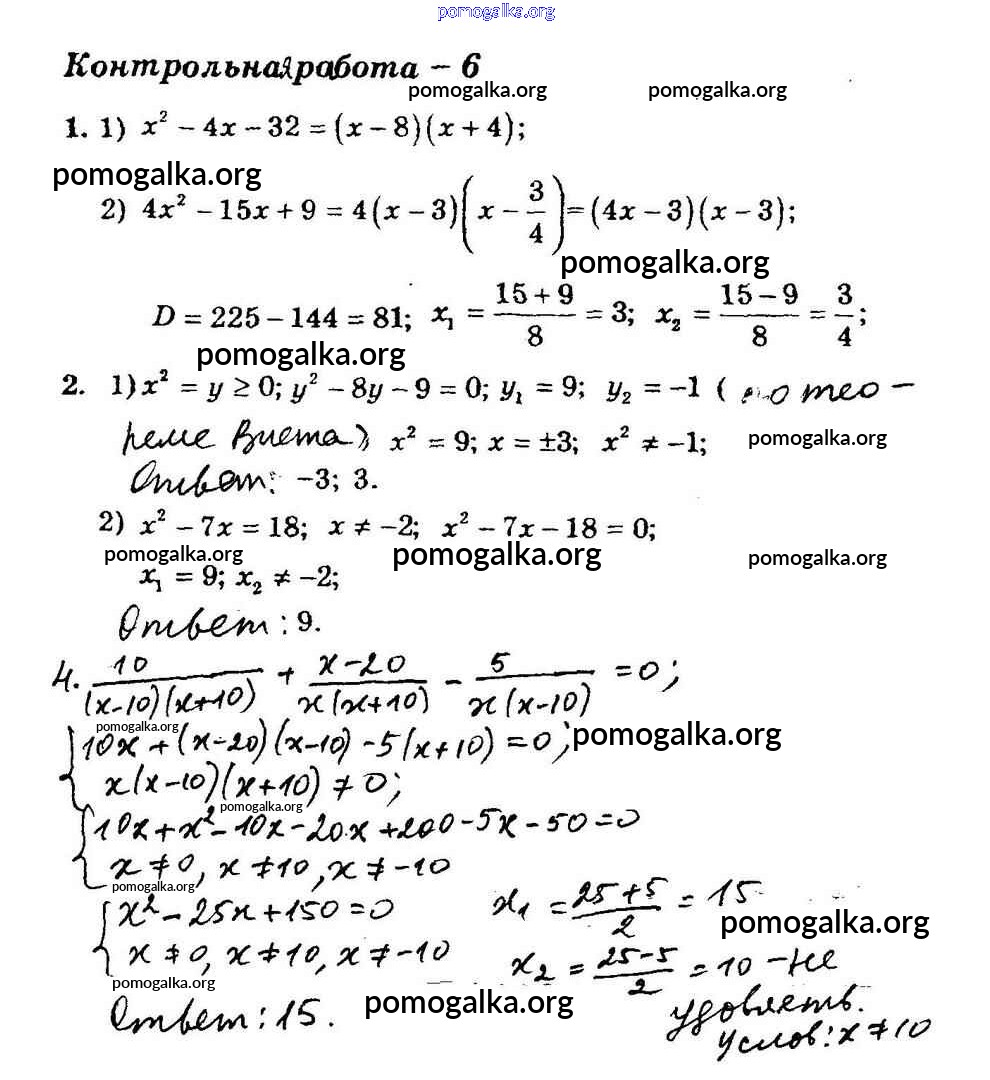 pomogalka.org
Контрольная работа – 6
pomogalka.org pomogalka.org
1. 1) x² – 4x – 32 = (x – 8)(x + 4);
pomogalka.org
2) 4x² – 15x + 9 = 4(x – 3)(x – 3/4) = (4x – 3)(x – 3);
pomogalka.org
D = 225 – 144 = 81; x₁ = (15 + 9)/8 = 3; x₂ = (15 – 9)/8 = 3/4;
pomogalka.org
2. 1) x² = y ≥ 0; y² – 8y – 9 = 0; y₁ = 9; y₂ = –1 (по тео-
реме Виета) x² = 9; x = ±3; x² ≠ –1;
pomogalka.org
Ответ: –3; 3.
2) x² – 7x = 18; x ≠ –2; x² – 7x – 18 = 0;
pomogalka.org pomogalka.org pomogalka.org
x₁ = 9; x₂ ≠ –2;
Ответ: 9.
4. 10/((x-10)(x+10)) + (x-20)/(x(x+10)) - 5/(x(x-10)) = 0;
pomogalka.org
10x + (x-20)(x-10) - 5(x+10) = 0;
pomogalka.org
x(x-10)(x+10) ≠ 0;
pomogalka.org
10x + x² - 10x - 20x + 200 - 5x - 50 = 0
x ≠ 0, x ≠ 10, x ≠ -10
pomogalka.org
x² - 25x + 150 = 0 x₁ = (25+5)/2 = 15
pomogalka.org
x ≠ 0, x ≠ 10, x ≠ -10 x₂ = (25-5)/2 = 10 - не
pomogalka.org pomogalka.org
Ответ: 15. удовлеть.
услов: x ≠ 10